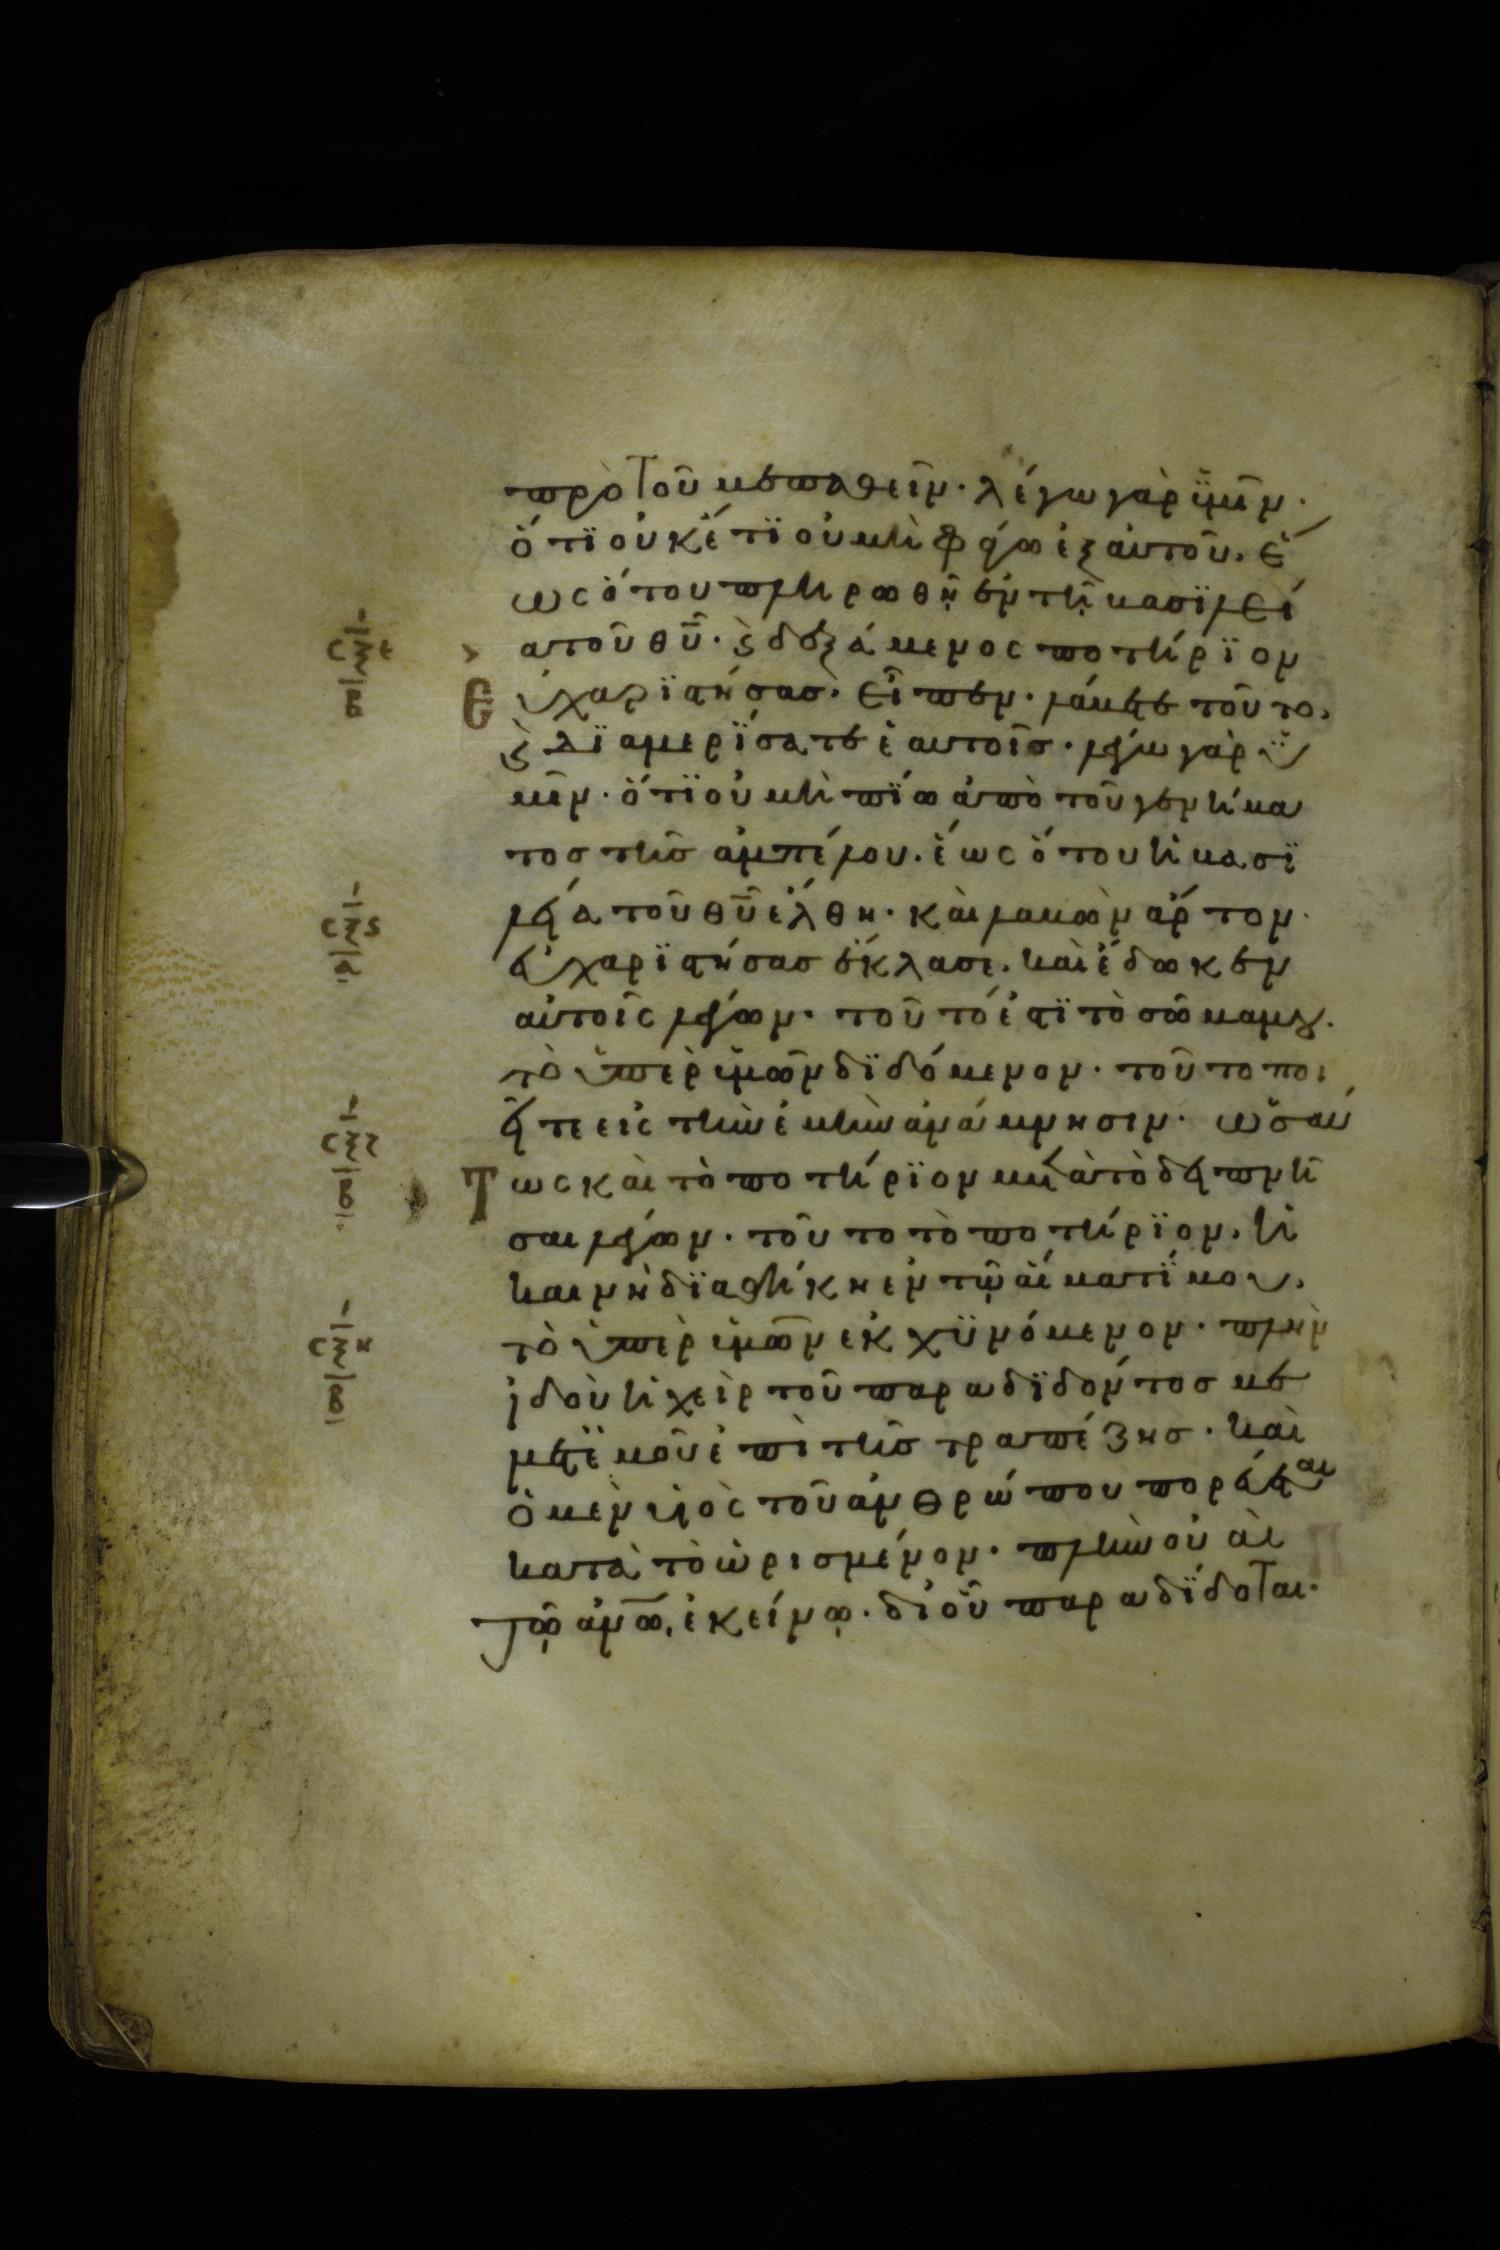 πρὸ τοῦ με παθεῖν· λέγω γὰρ ὑμῖν·
ὅτϊ οὐκέτϊ οὐ μὴ φάγω ἐξ αὐτοῦ. ἕ
ως ὅτου πληρωθῆ ἐν τῆ βασϊλεί
σξε
β
α τοῦ θῦ· ϗ δεξάμενος ποτήρϊον
εὐχαρϊστήσας· εἶπεν· λάβετε τοῦτο.
ϗ δϊαμερΐσατε ἑαυτοῖς· λέγω γὰρ ὑ
μῖν· ὅτϊ οὐ μὴ πΐω ἀπὸ τοῦ γενήμα
τος τῆς ἀμπέλου. ἕως ὅτου ἡ βασϊ
σξς
α
λεία τοῦ θῦ ἔλθη· καὶ λαβὼν ἄρτον·
εὐχαρϊστήσας ἔκλασε. καὶ ἔδωκεν
αὐτοῖς λέγων· τοῦτό ἐστϊ τὸ σῶμα μου.
τὸ ὑπὲρ ὑμῶν δϊδόμενον· τοῦτο ποι
εῖτε εἰς τὴν ἐμὴν ἀνάμνησιν· ὡσαύ
σξζ
β
τως καὶ τὸ ποτήρϊον μετὰ τὸ δειπνῆ
σαι λέγων· τοῦτο τὸ ποτήρϊον. ἡ
καινὴ δϊαθήκη ἐν τῶ αἵματΐ μου.
σξη
β
τὸ ὑπὲρ ὑμῶν ἐκχϋνόμενον· πλὴν
ἰδοὺ ἡ χεὶρ τοῦ παραδϊδόντος με
μετ ἐμοῦ ἐπὶ τῆς τραπέζης· καὶ
ὁ μὲν υἱὸς τοῦ ἀνθρώπου πορεύεται
κατὰ τὸ ὡρισμένον· πλὴν οὐαὶ
τῶ ἀνω, ἐκείνω· δι οὗ παραδΐδοται·